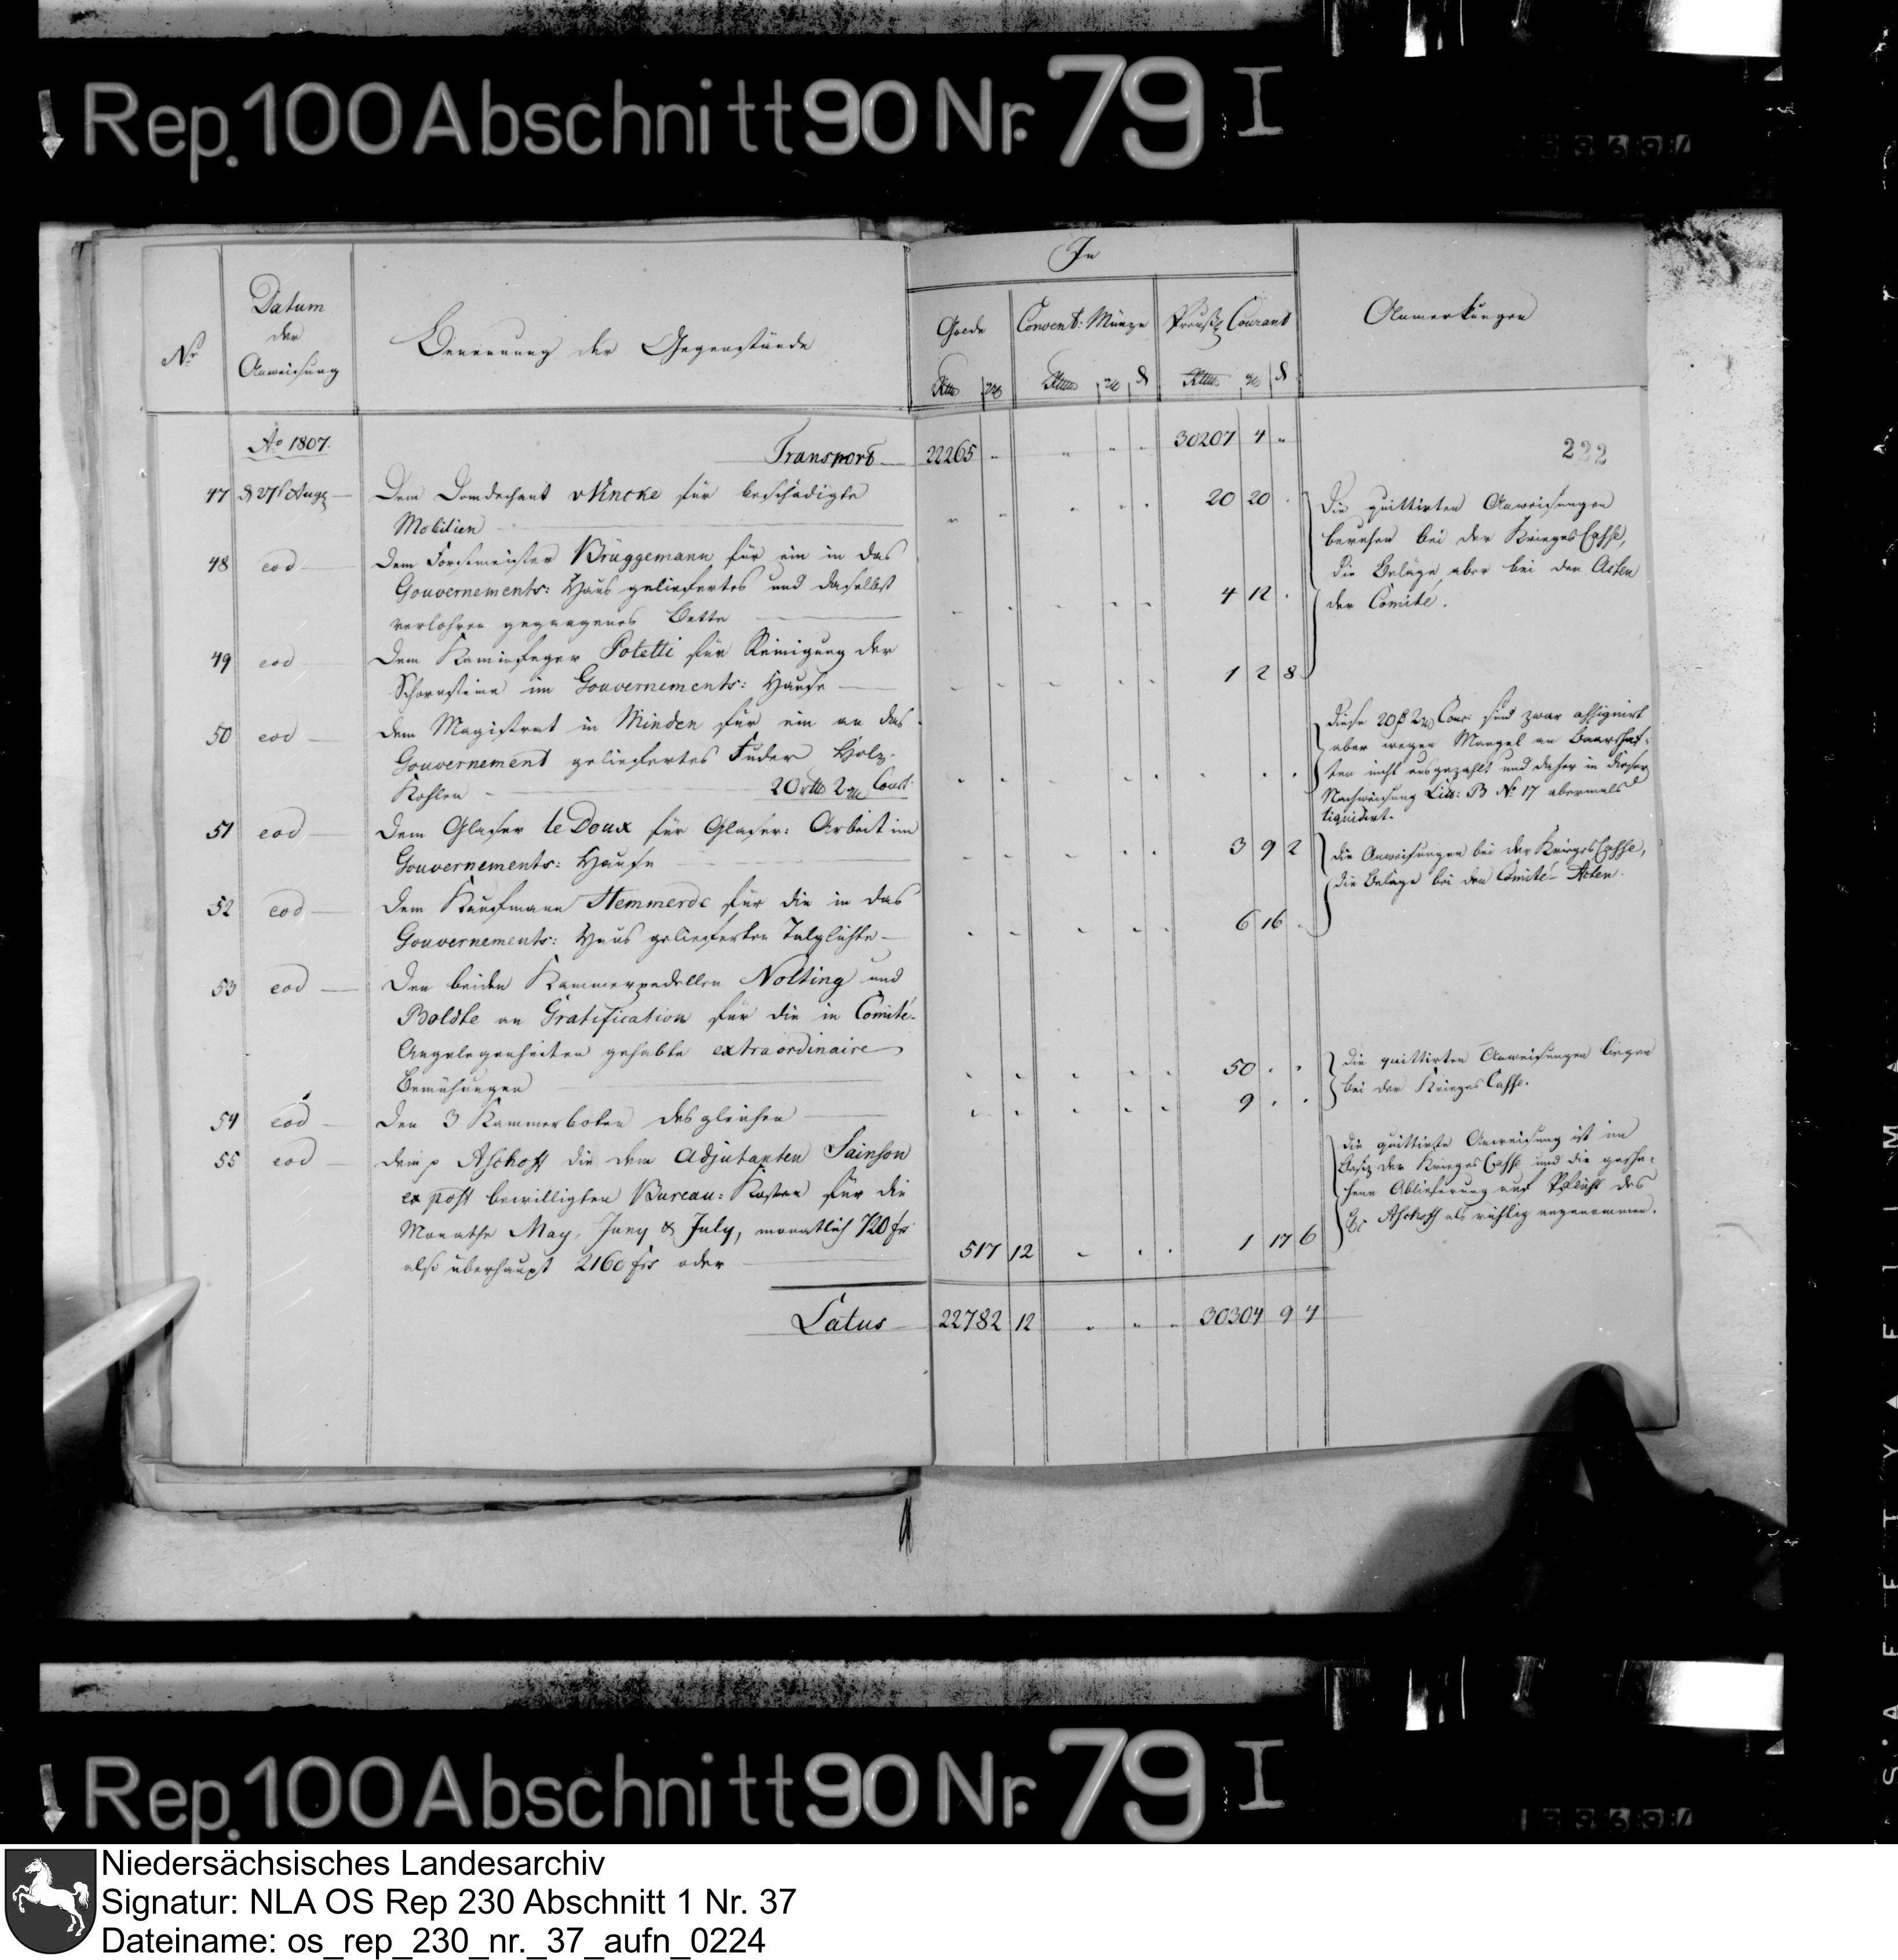 Rep. 100 Abschnitt 90 Nr. 79 I
In
Nr
Datum
der
Anweisung
Benennung der Gegenstände
Golde
Convent: Münze
Preuß. Courant
Anmerkungen
Rtlr ggr
Rtlr ggr ₰
Rtlr ggr ₰
222
Ao 1807. Transport 22265 30207 4
47 d 27t Aug Dem Domdechant v Vincke für beschädigte
Mobilien 20 20
48 eod Dem Forstmeister Brüggemann für ein in das
Gouvernements: Haus geliefertes und daselbst
verlohren gegangenes Bette 4 12
49 eod Dem Kaminfeger Potetti für Reinigung der
Schornsteine im Gouvernements: Hause 1 2 8
Die quittirten Anweisungen
beruhen bei der Krieges Casse,
die Beläge aber bei den Acten
der Comité.
50 eod Dem Magistrat in Minden für ein an das
Gouvernement geliefertes Fuder Holz-
Kohlen 20 rtlr 2 ggr Cour:
Diese 20 rt 2 ggr Cour: sind zwar assignirt
aber wegen Mangel an Baarschaf-
ten nicht ausgezahlt und daher in dieser
Nachweisung Litt: B No 17 abermals
liquidirt.
51 eod Dem Glaser le Doux für Glaser: Arbeit im
Gouvernements: Hause 3 9 2
52 eod Dem Kaufmann Hemmerde für die in das
Gouvernements: Haus gelieferten Talglichte 6 16
Die Anweisungen bei der Krieges Casse,
die Beläge bei den Comité-Acten.
53 eod Den beiden Kammerpedellen Nolting und
Boldte an Gratification für die in Comité-
Angelegenheiten gehabte extraordinaire
Bemühungen 50
54 eod Den 3 Kammerboten desgleichen 9
Die quittirten Anweisungen liegen
bei der Krieges Casse.
55 eod Dem p Aschoff die dem Adjutanten Sainson
ex post bewilligten Bureau: Kosten für die
Monathe May, Juny & July, monatlich 720 frs
also überhaupt 2160 frs oder 517 12 1 17 6
Die quittirte Anweisung ist im
Besitz der Krieges Casse und die gesche-
hene Ablieferung auf Pflicht des
Aschoff als richtig angenommen.
Latus 22782 12 30304 9 4
Rep. 100 Abschnitt 90 Nr. 79 I
Niedersächsisches Landesarchiv
Signatur: NLA OS Rep 230 Abschnitt 1 Nr. 37
Dateiname: os_rep_230_nr._37_aufn_0224